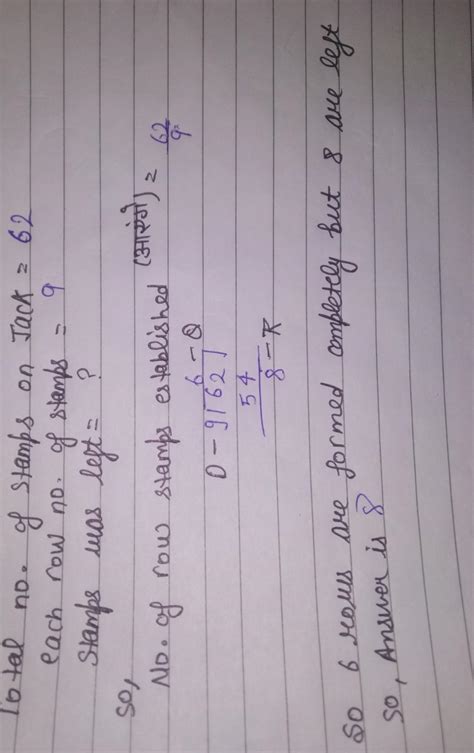 Total no. of stamps on Jack = 62
each row no. of stamps = 9
stamps was left = ?
so,
No. of row stamps established (आएंगे) = 62/9
6 - Q
D - 9)62(
54
8 - R
So 6 rows are formed completely but 8 are left
so, Answer is 8